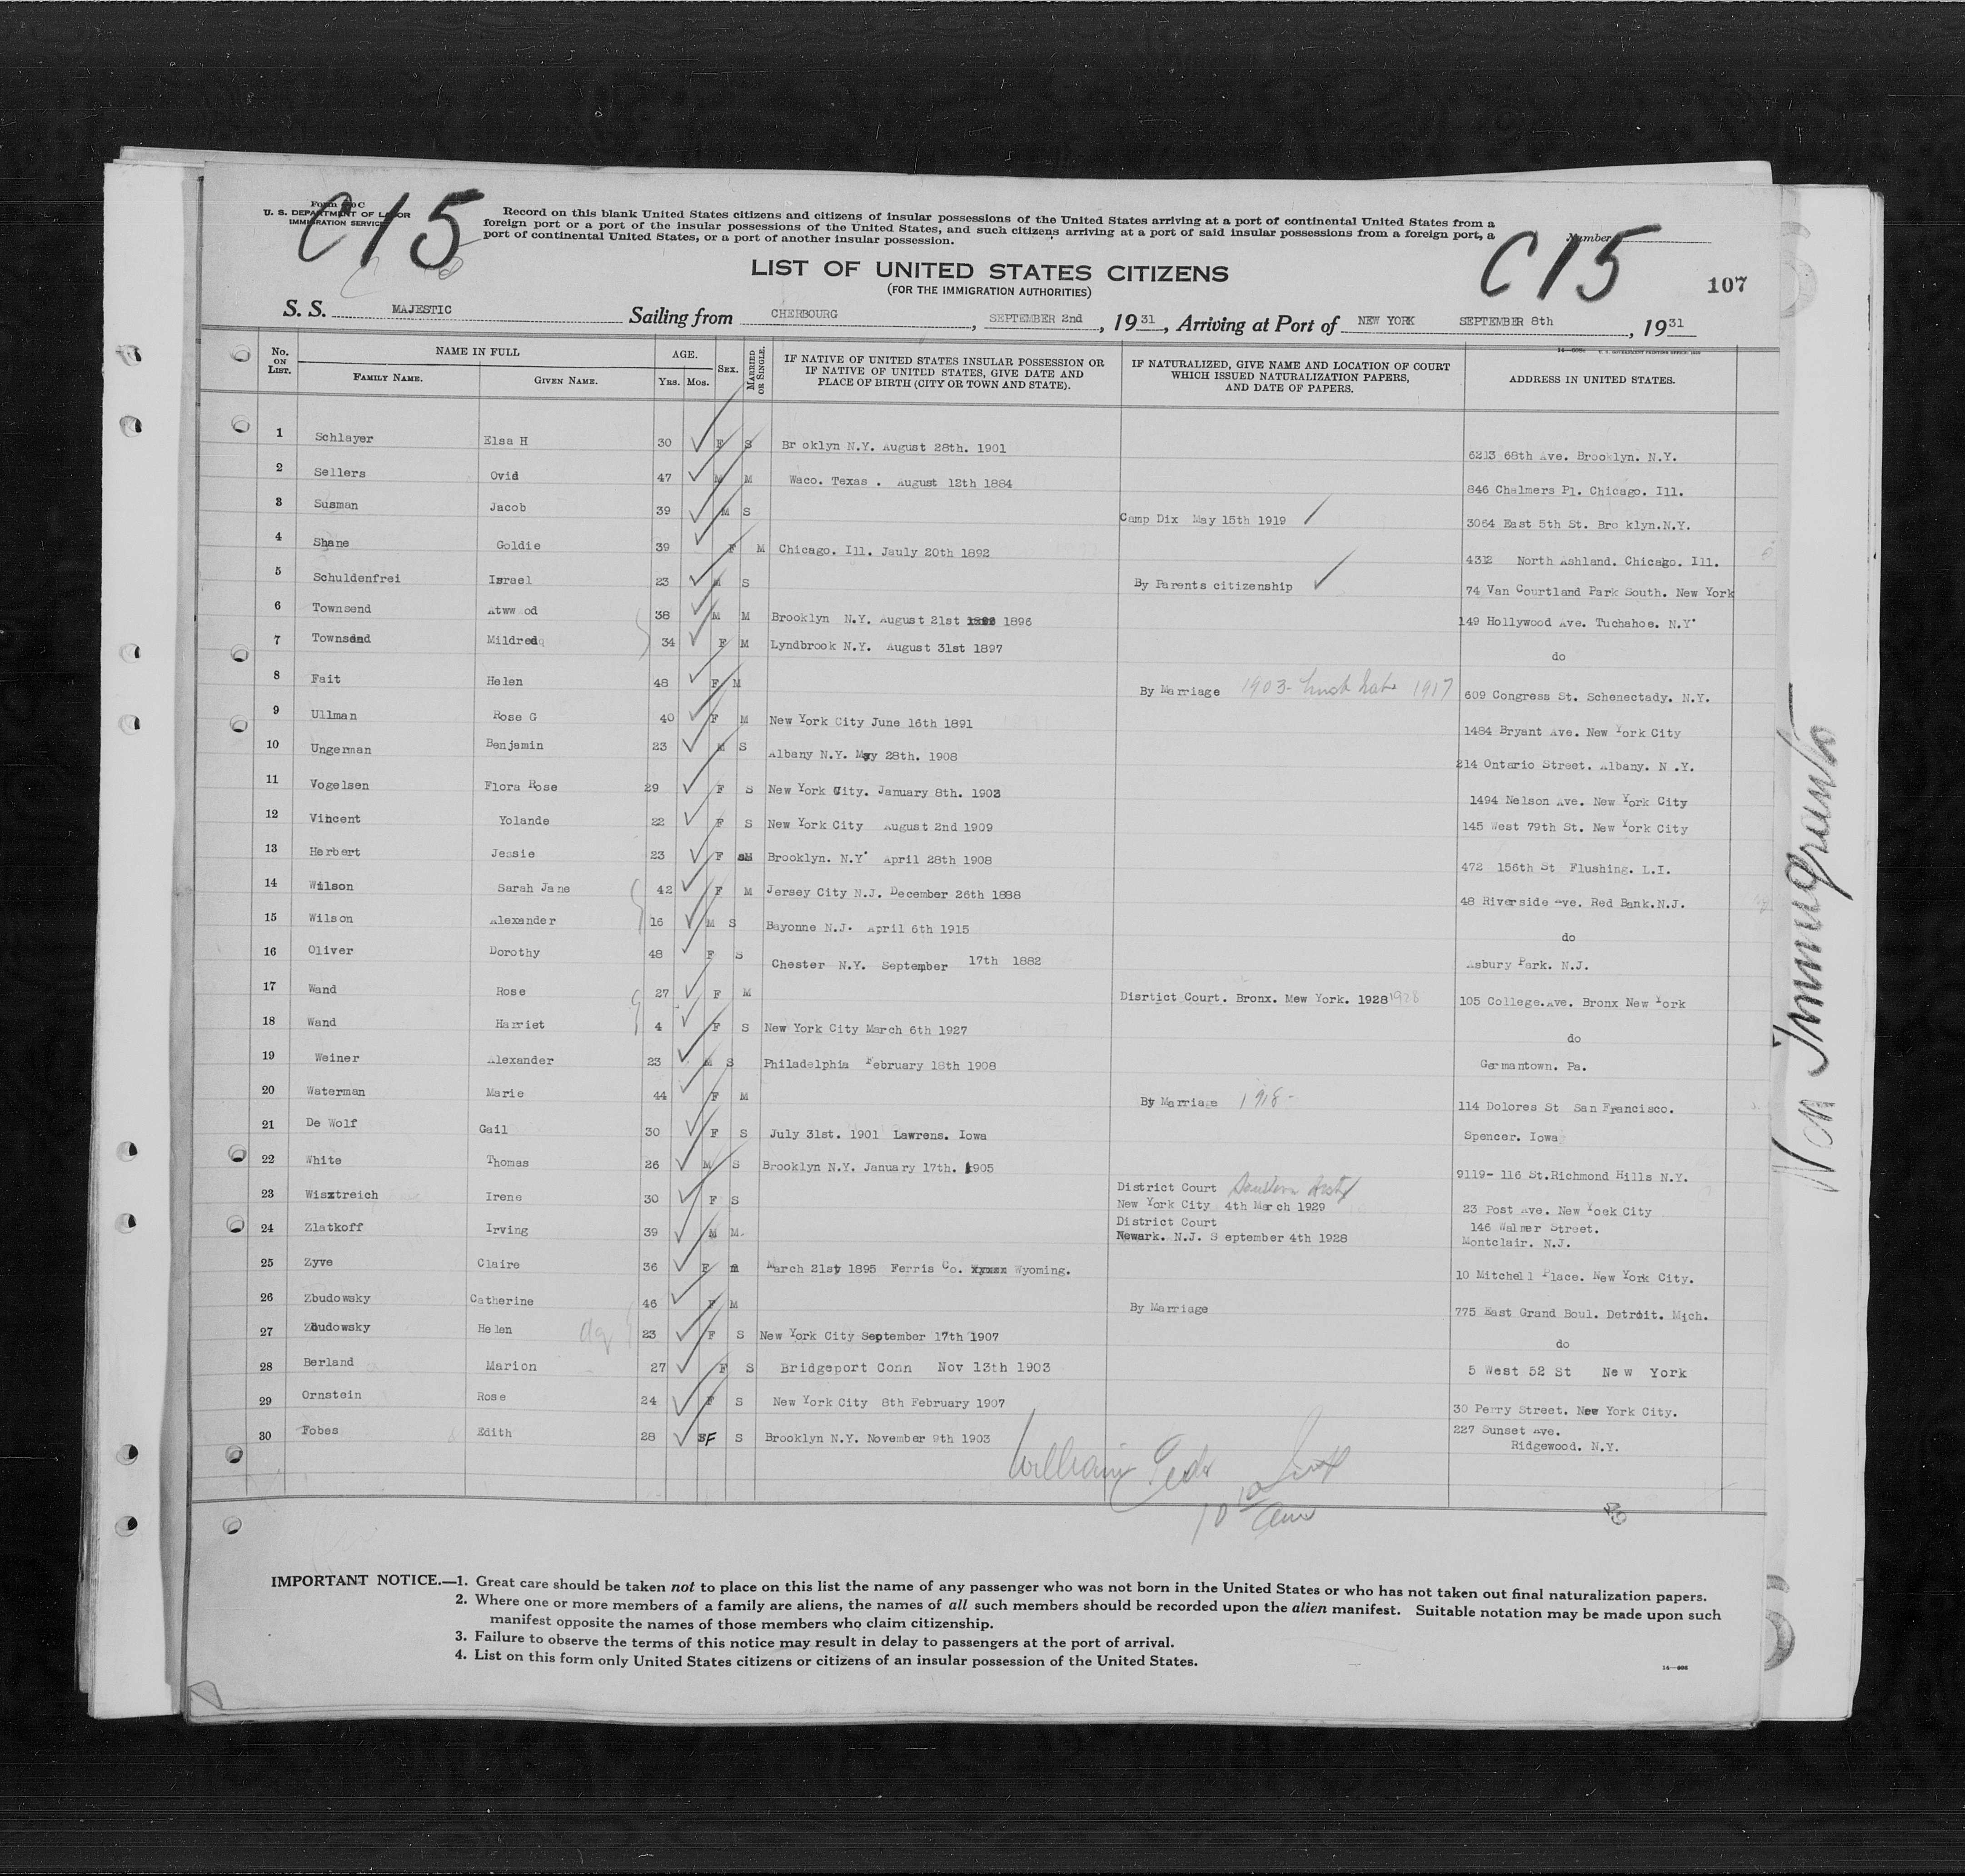 Form 630 C
U. S. DEPARTMENT OF LABOR
IMMIGRATION SERVICE
C15
Record on this blank United States citizens and citizens of insular possessions of the United States arriving at a port of continental United States from a
foreign port or a port of the insular possessions of the United States, and such citizens arriving at a port of said insular possessions from a foreign port, a
port of continental United States, or a port of another insular possession.
Number
C15
107
LIST OF UNITED STATES CITIZENS
(FOR THE IMMIGRATION AUTHORITIES)
S. S. MAJESTIC Sailing from CHERBOURG, SEPTEMBER 2nd, 1931, Arriving at Port of NEW YORK SEPTEMBER 8th, 1931
No. ON LIST. NAME IN FULL FAMILY NAME. GIVEN NAME. AGE. Yrs. Mos. SEX. MARRIED OR SINGLE. IF NATIVE OF UNITED STATES INSULAR POSSESSION OR IF NATIVE OF UNITED STATES, GIVE DATE AND PLACE OF BIRTH (CITY OR TOWN AND STATE). IF NATURALIZED, GIVE NAME AND LOCATION OF COURT WHICH ISSUED NATURALIZATION PAPERS, AND DATE OF PAPERS. ADDRESS IN UNITED STATES.
1 Schlayer Elsa H 30 F S Br oklyn N.Y. August 28th. 1901 6213 68th Ave. Brooklyn. N.Y.
2 Sellers Ovid 47 M M Waco. Texas . August 12th 1884 846 Chalmers Pl. Chicago. Ill.
3 Susman Jacob 39 M S Camp Dix May 15th 1919 3064 East 5th St. Bro klyn.N.Y.
4 Shane Goldie 39 F M Chicago. Ill. Jauly 20th 1892 4312 North Ashland. Chicago. Ill.
5 Schuldenfrei Israel 23 M S By Parents citizenship 74 Van Courtland Park South. New York
6 Townsend Atww od 38 M M Brooklyn N.Y. August 21st 1896 149 Hollywood Ave. Tuchahoe. N.Y.
7 Townsend Mildred 34 F M Lyndbrook N.Y. August 31st 1897 do
8 Fait Helen 48 F M By Marriage 1903- 1917 609 Congress St. Schenectady. N.Y.
9 Ullman Rose G 40 F M New York City June 16th 1891 1484 Bryant Ave. New York City
10 Ungerman Benjamin 23 M S Albany N.Y. May 28th. 1908 214 Ontario Street. Albany. N .Y.
11 Vogelsen Flora Rose 29 F S New York City. January 8th. 1902 1494 Nelson Ave. New York City
12 Vincent Yolande 22 F S New York City August 2nd 1909 145 West 79th St. New York City
13 Herbert Jessie 23 F M Brooklyn. N.Y. April 28th 1908 472 156th St Flushing. L.I.
14 Wilson Sarah Jane 42 F M Jersey City N.J. December 26th 1888 48 Riverside Ave. Red Bank.N.J.
15 Wilson Alexander 16 M S Bayonne N.J. April 6th 1915 do
16 Oliver Dorothy 48 F S Chester N.Y. September 17th 1882 Asbury Park. N.J.
17 Wand Rose 27 F M Disrtict Court. Bronx. Mew York. 1928 1928 105 College.Ave. Bronx New York
18 Wand Harriet 4 F S New York City March 6th 1927 do
19 Weiner Alexander 23 M S Philadelphia February 18th 1908 Germantown. Pa.
20 Waterman Marie 44 F M By Marriage 1918- 114 Dolores St San Francisco.
21 De Wolf Gail 30 F S July 31st. 1901 Lawrens. Iowa Spencer. Iowa
22 White Thomas 26 M S Brooklyn N.Y. January 17th. 1905 9119- 116 St.Richmond Hills N.Y.
23 Wisztreich Irene 30 F S District Court Southern Dist New York City 4th March 1929 23 Post Ave. New Yoek City
24 Zlatkoff Irving 39 M M District Court Newark. N.J. S eptember 4th 1928 146 Walmer Street. Montclair. N.J.
25 Zyve Claire 36 F March 21st 1895 Ferris Co. xyxxx Wyoming. 10 Mitchell Place. New York City.
26 Zbudowsky Catherine 46 F M By Marriage 775 East Grand Boul. Detroit. Mich.
27 Zbudowsky Helen 23 F S New York City September 17th 1907 do
28 Berland Marion 27 F S Bridgeport Conn Nov 13th 1903 5 West 52 St New York
29 Ornstein Rose 24 F S New York City 8th February 1907 30 Perry Street. New York City.
30 Fobes Edith 28 F S Brooklyn N.Y. November 9th 1903 227 Sunset Ave. Ridgewood. N.Y.
Non Immigrants
IMPORTANT NOTICE.—1. Great care should be taken not to place on this list the name of any passenger who was not born in the United States or who has not taken out final naturalization papers.
2. Where one or more members of a family are aliens, the names of all such members should be recorded upon the alien manifest. Suitable notation may be made upon such
manifest opposite the names of those members who claim citizenship.
3. Failure to observe the terms of this notice may result in delay to passengers at the port of arrival.
4. List on this form only United States citizens or citizens of an insular possession of the United States.